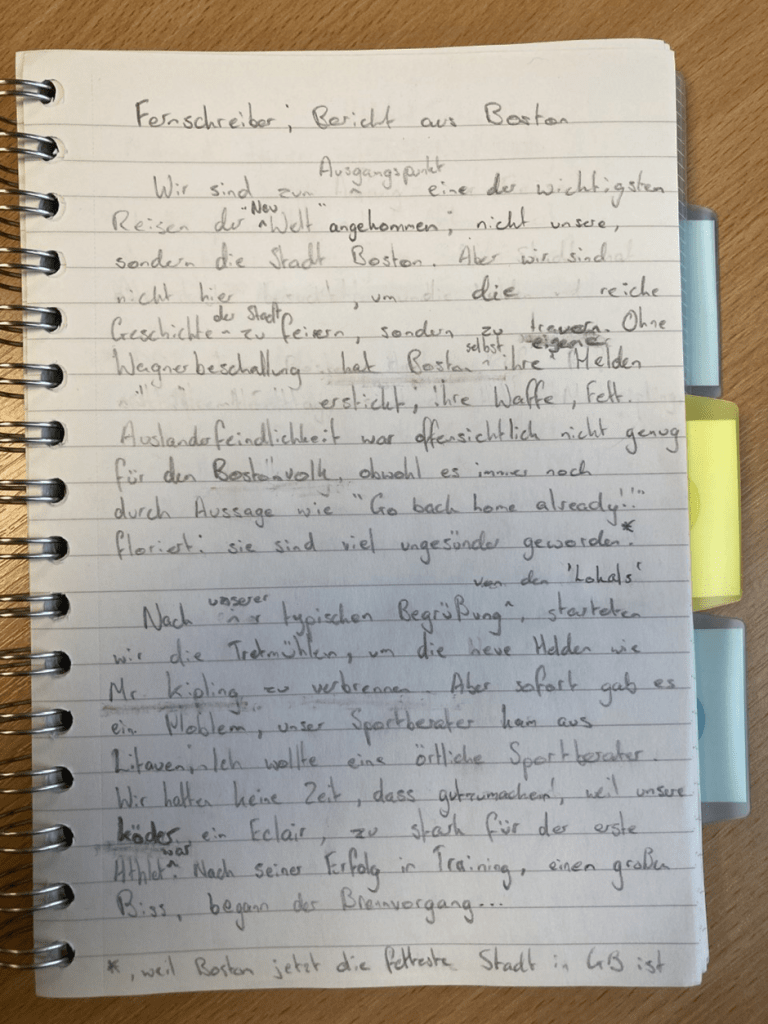 Fernschreiber; Bericht aus Boston
Ausgangspunkt
Wir sind zum ^ eine der wichtigsten
"Neu "
Reisen der ^Welt angekommen; nicht unsere,
sondern die Stadt Boston. Aber wir sind
nicht hier , um die reiche
der Stadt
Geschichte ^ zu feiern, sondern zu trauern. Ohne
selbst eigene
Wagnerbeschallung hat Boston ^ ihre ^ Helden
erstickt; ihre Waffe, Fett.
Auslanderfeindlichkeit war offensichtlich nicht genug
für den Boston volk, obwohl es immer noch
durch Aussage wie "Go back home already!!"
floriert: sie sind viel ungesünder geworden.*
von den 'Lokals'
unserer
Nach ^ typischen Begrüßung ^, starteten
wir die Tretmühlen, um die neue Helden wie
Mr. Kipling zu verbrennen. Aber sofort gab es
ein Problem, unser Sportberater kam aus
Litauen; Ich wollte eine örtliche Sportberater.
Wir hatten keine Zeit, dass gutzumachen, weil unsere
köder, ein Eclair, zu stark für der erste
war
Athlet ^. Nach seiner Erfolg in Training, einen großen
Biss, begann der Brennvorgang...
*, weil Boston jetzt die fetteste Stadt in GB ist